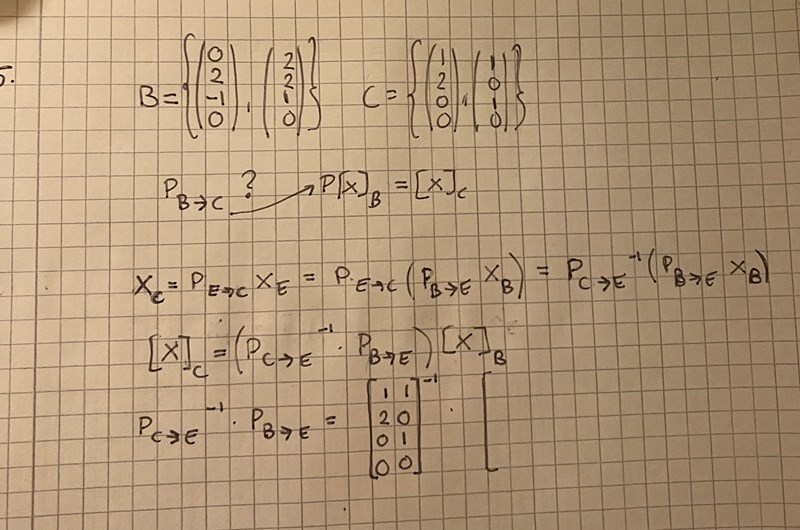 5.
B = { (0 2 -1 0) , (2 2 1 0) } C = { (1 2 0 0) , (1 0 1 0) }
P_{B→C} ? → P[x]_B = [x]_C
X_C = P_{E→C} X_E = P_{E→C} (P_{B→E} X_B) = P_{C→E}^{-1} (P_{B→E} X_B)
[X]_C = (P_{C→E}^{-1} · P_{B→E}) [X]_B
P_{C→E}^{-1} · P_{B→E} = [1 1; 2 0; 0 1; 0 0]^{-1} · [